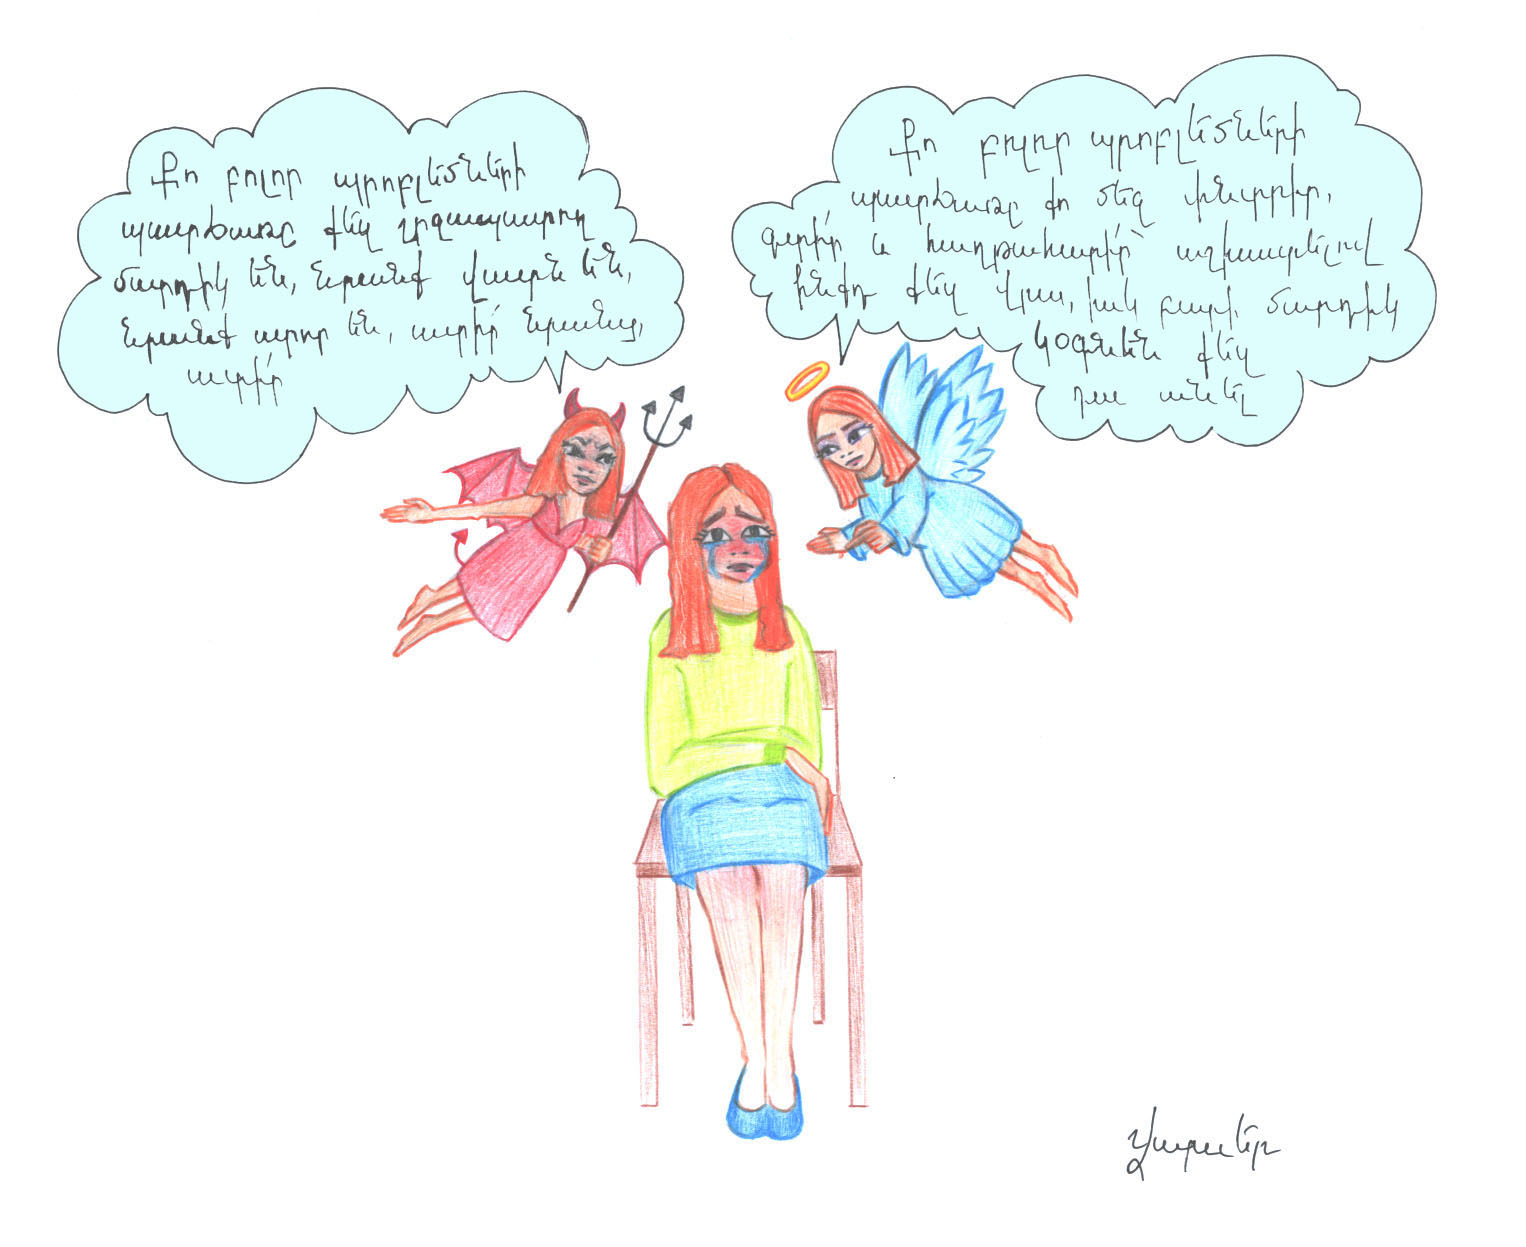 Քո բոլոր պրոբլեմների
պատճառը քեզ շրջապատող
մարդիկ են, նրանք վատն են,
նրանք չար են, ատիր նրանց,
ատիր
Քո բոլոր պրոբլեմների
պատճառը քո մեջ փնտրիր,
գտիր և հաղթահարիր՝ աշխատելով
ինքդ քեզ վրա, իսկ բարի մարդիկ
կօգնեն քեզ
դա անել